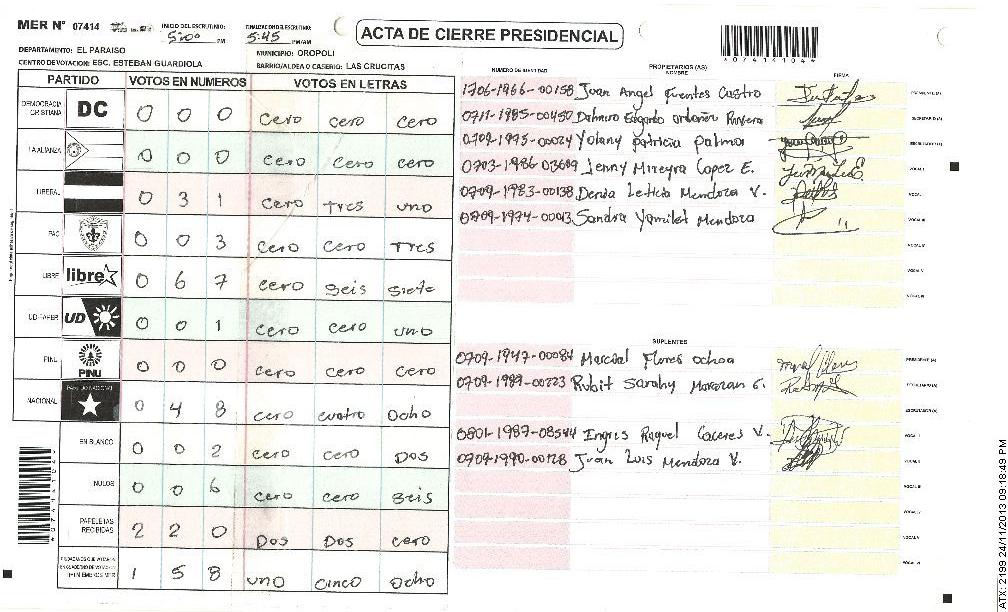 MER N° 07414
INICIO DEL ESCRUTINIO: 5:00 PM
FINALIZACION DEL ESCRUTINIO: 5:45 PM/AM
ACTA DE CIERRE PRESIDENCIAL
*07414104*
DEPARTAMENTO: EL PARAISO
MUNICIPIO: OROPOLI
CENTRO DE VOTACION: ESC. ESTEBAN GUARDIOLA
BARRIO/ALDEA O CASERIO: LAS CRUCITAS
PARTIDO VOTOS EN NUMEROS VOTOS EN LETRAS
DEMOCRACIA CRISTIANA DC 0 0 0 cero cero cero
LA ALIANZA 0 0 0 cero cero cero
LIBERAL 0 3 1 cero Tres uno
PAC 0 0 3 cero cero Tres
LIBRE libre 0 6 7 cero seis siete
UD-FAPER UD 0 0 1 cero cero uno
PINU PINU 0 0 0 cero cero cero
NACIONAL 0 4 8 cero cuatro Ocho
EN BLANCO 0 0 2 cero cero Dos
NULOS 0 0 6 cero cero seis
PAPELETAS RECIBIDAS 2 2 0 Dos Dos cero
1 5 8 uno cinco Ocho
NUMERO DE IDENTIDAD
PROPIETARIOS (AS)
NOMBRE
FIRMA
1706-1966-00158 Juan Angel Fuentes Castro PRESIDENTE (A)
0711-1985-00450 Edgardo Ordoñez SECRETARIO (A)
0709-1975-00024 Yolany patricia palma ESCRUTADOR (A)
0703-1986-03609 Jenny Mireyra Lopez E. VOCAL I
0709-1983-00138 Denia Leticia Mendoza V. VOCAL II
0709-1974-00043 Sandra Yamilet Mendoza VOCAL III
VOCAL IV
VOCAL V
VOCAL VI
SUPLENTES
0709-1947-00084 Marcial Flores Ochoa PRESIDENTE (A)
0709-1989-00223 Rubit Sarahy G. SECRETARIO (A)
ESCRUTADOR (A)
0801-1987-08544 Ingris Raquel Caceres V. VOCAL I
0709-1990-00128 Juan Luis Mendoza V. VOCAL II
VOCAL III
VOCAL IV
VOCAL V
VOCAL VI
ATX: 2199 24/11/2013 09:18:49 PM